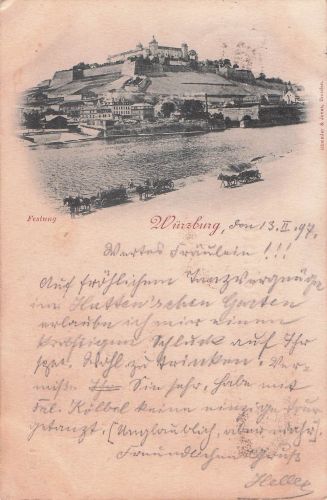 Festung
Würzburg, den 13. II. 97.
Wertes Fräulein!!!
Auf fröhlichem Tanzvergnüge
im Hutten'schen Garten
erlaube ich mir einen
kräftigen Schluck auf Ihr
spez. Wohl zu trinken. Ver-
misse Sie sehr, habe mit
Frl. Kölbel keine einzige Tour
getanzt. (Unglaublich, aber wahr)
Freundlichen Gruß
Heller